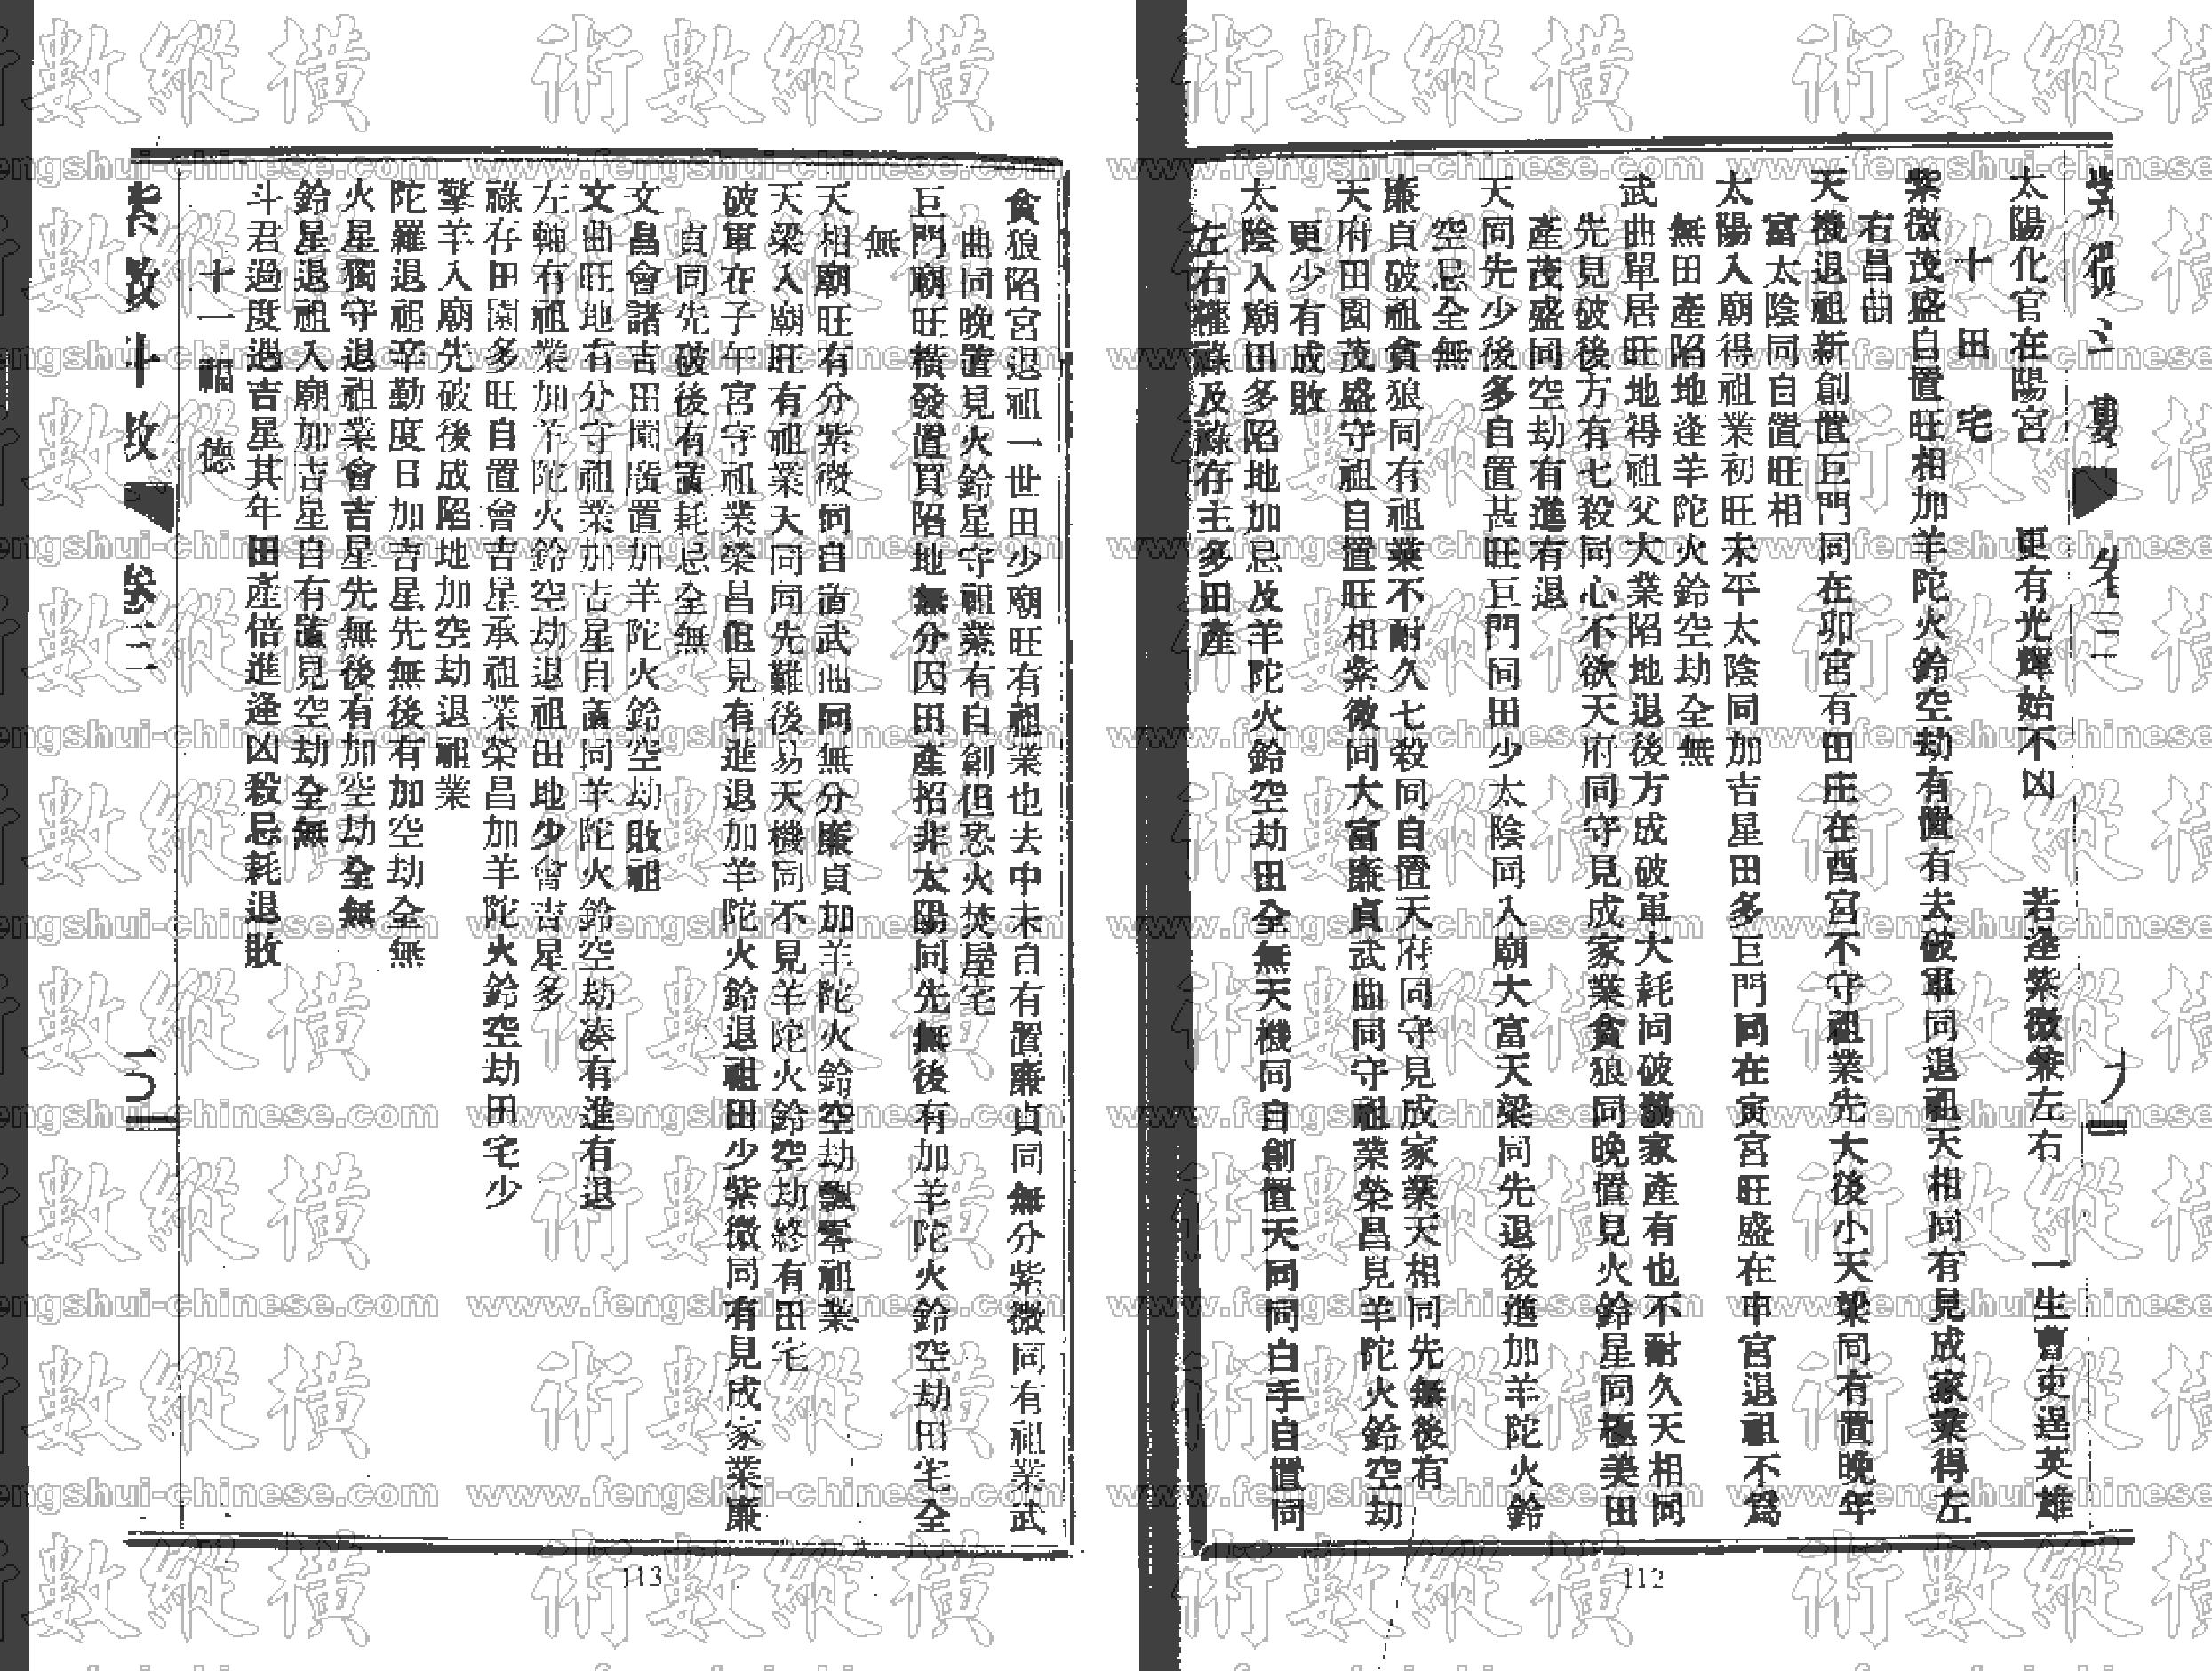 太陽化官在陽宮　更有光輝始不凶　若逢紫微兼左右　一生曹吏逞英雄
十　田　宅
紫微茂盛自置旺相加羊陀火鈴空劫有置有去破軍同退祖天相同有見成家業得左
右昌曲
天機退祖新創置巨門同在卯宮有田庄在酉宮不守祖業先大後小天梁同有置晚年
富太陰同自置旺相
太陽入廟得祖業初旺末平太陰同加吉星田多巨門同在寅宮旺盛在申宮退祖不爲
無田產陷地逢羊陀火鈴空劫全無
武曲單居旺地得祖父大業陷地退後方成破軍大耗同破蕩家產有也不耐久天相同
先見破後方有七殺同心不欲天府同守見成家業貪狼同晚置見火鈴星同極美田
產茂盛同空劫有進有退
天同先少後多自置甚旺巨門同田少太陰同入廟大富天梁同先退後進加羊陀火鈴
空忌全無
廉貞破祖貪狼同有祖業不耐久七殺同自置天府同守見成家業天相同先無後有
天府田園茂盛守祖自置旺相紫微同大富廉貞武曲同守祖業榮昌見羊陀火鈴空劫
更少有成敗
太陰入廟田多陷地加忌及羊陀火鈴空劫田全無天機同自創置天同同白手自置同
左右權祿及祿存主多田產
112
貪狼陷宮退祖一世田少廟旺有祖業也去中末自有置廉貞同無分紫微同有祖業武
曲同晚置見火鈴星守祖業有自創但恐火焚屋宅
巨門廟旺橫發置買陷地無分因田產招非太陽同先無後有加羊陀火鈴空劫田宅全
無
天相廟旺有分紫微同自置武曲同無分廉貞加羊陀火鈴空劫飄零祖業
天梁入廟旺有祖業天同同先難後易天機同不見羊陀火鈴空劫終有田宅
破軍在子午宮守祖業榮昌但見有進退加羊陀火鈴退祖田少紫微同有見成家業廉
貞同先破後有置耗忌全無
文昌會諸吉田園廣置加羊陀火鈴空劫敗祖
文曲旺地有分守祖業加吉星自置同羊陀火鈴空劫湊有進有退
左輔有祖業加羊陀火鈴空劫退祖田地少會吉星多
祿存田園多旺自置會吉星承祖業榮昌加羊陀火鈴空劫田宅少
擎羊入廟先破後成陷地加空劫退祖業
陀羅退祖辛勤度日加吉星先無後有加空劫全無
火星獨守退祖業會吉星先無後有加空劫全無
鈴星退祖入廟加吉星自有置見空劫全無
斗君過度遇吉星其年田產倍進逢凶殺忌耗退敗
十一　福　德
113
術數縱橫
www.fengshui-chinese.com